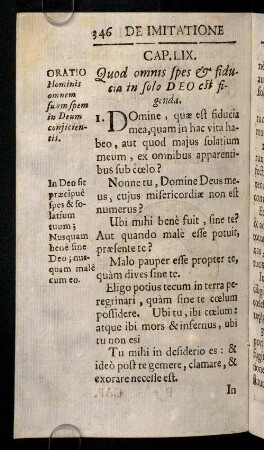 346 DE IMITATIONE
CAP. LIX.
Quod omnis spes & fidu-
cia in solo DEO est fi-
genda.
ORATIO
Hominis
omnem
suam spem
in Deum
conjicien-
tis.
1. Domine, quæ est fiducia
mea, quam in hac vita ha-
beo, aut quod majus solatium
meum, ex omnibus apparenti-
bus sub cœlo?
In Deo sit
præcipuè
spes & so-
latium
tuum;
Nusquam
benè sine
Deo; nus-
quam malè
cum eo.
Nonne tu, Domine Deus me-
us, cujus misericordiæ non est
numerus?
Ubi mihi benè fuit, sine te?
Aut quando malè esse potuit,
præsente te?
Malo pauper esse propter te,
quàm dives sine te.
Eligo potius tecum in terra pe-
regrinari, quàm sine te cœlum
possidere. Ubi tu, ibi cœlum:
atque ibi mors & infernus, ubi
tu non es.
Tu mihi in desiderio es: &
ideò post te gemere, clamare, &
exorare necesse est.
In